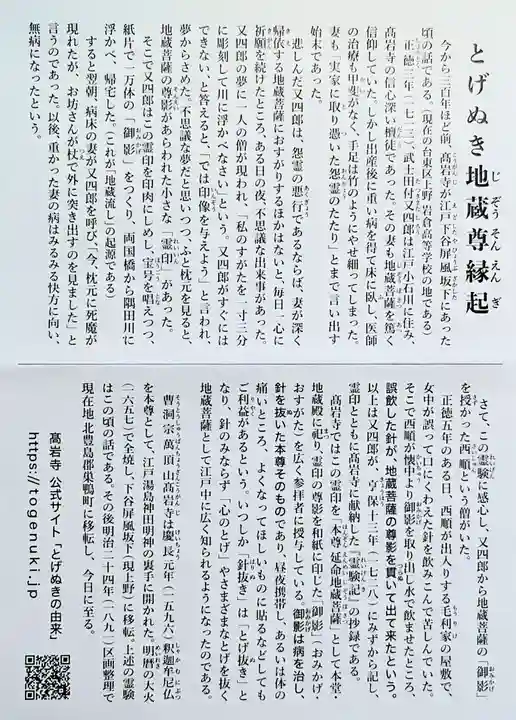 とげぬき地蔵尊縁起
じぞうそんえんぎ
今から三百年ほど前、高岩寺が江戸下谷屏風坂下にあった
頃の話である。（現在の台東区上野 岩倉高等学校の地である）
正徳三年（一七一三）、武士田付又四郎は江戸小石川に住み、
高岩寺の信心深い檀徒であった。その妻も地蔵菩薩を篤く
信仰していた。しかし出産後に重い病を得て床に臥し、医師
の治療も甲斐がなく、手足は竹のようにやせ細ってしまった。
妻も「実家に取り憑いた怨霊のたたり」とまで言い出す
始末であった。
悲しんだ又四郎は、怨霊の悪行であるならば、妻が深く
帰依する地蔵菩薩におすがりするほかはないと、毎日一心に
祈願を続けたところ、ある日の夜、不思議な出来事があった。
又四郎の夢に一人の僧が現われ、「私のすがたを一寸三分
に彫刻して川に浮かべなさい」という。又四郎がすぐには
できない、と答えると、「では印像を与えよう」と言われ、
夢からさめた。不思議な夢だと思いつつ、ふと枕元を見ると、
地蔵菩薩の尊影があらわれた小さな「霊印」があった。
そこで又四郎はこの霊印を印肉にしめし、宝号を唱えつつ、
紙片で一万体の「御影」をつくり、両国橋から隅田川に
浮かべ、帰宅した。（これが「地蔵流し」の起源である）
すると翌朝、病床の妻が又四郎を呼び、「今、枕元に死魔が
現れたが、お坊さんが杖で外に突き出すのを見ました」と
言うのであった。以後、重かった妻の病はみるみる快方に向い、
無病になったという。
さて、この霊験に感心し、又四郎から地蔵菩薩の「御影」
を授かった西順という僧がいた。
正徳五年のある日、西順が出入りする毛利家の屋敷で、
女中が誤って口にくわえた針を飲みこんで苦しんでいた。
そこで西順が懐中より御影を取り出し水で飲ませたところ、
誤飲した針が、地蔵菩薩の尊影を貫いて出て来たという。
以上は又四郎が、享保十三年（一七二八）にみずから記し、
霊印とともに高岩寺に献納した『霊験記』の抄録である。
高岩寺ではこの霊印を「本尊延命地蔵菩薩」として本堂・
地蔵殿に祀り、霊印の尊影を和紙に印じた「御影」（おみかげ・
おすがた）を広く参拝者に授与している。御影は病を治し、
針を抜いた本尊そのものであり、昼夜携帯し、あるいは体の
痛いところ、よくなってほしいものに貼るなどしても
ご利益があるという。いつしか「針抜き」は「とげ抜き」と
なり、針のみならず「心のとげ」やさまざまなとげを抜く
地蔵菩薩として江戸中に広く知られるようになったのである。
曹洞宗萬頂山高岩寺は慶長元年（一五九六）釈迦牟尼仏
を本尊として、江戸湯島神田明神の裏手に開かれた。明暦の大火
（一六五七）で全焼し、下谷屏風坂下（現上野）に移転。上述の霊験
はこの頃の話である。その後明治二十四年（一八九一）区画整理で
現在地北豊島郡巣鴨町に移転し、今日に至る。
高岩寺 公式サイト「とげぬきの由来」
https://togenuki.jp